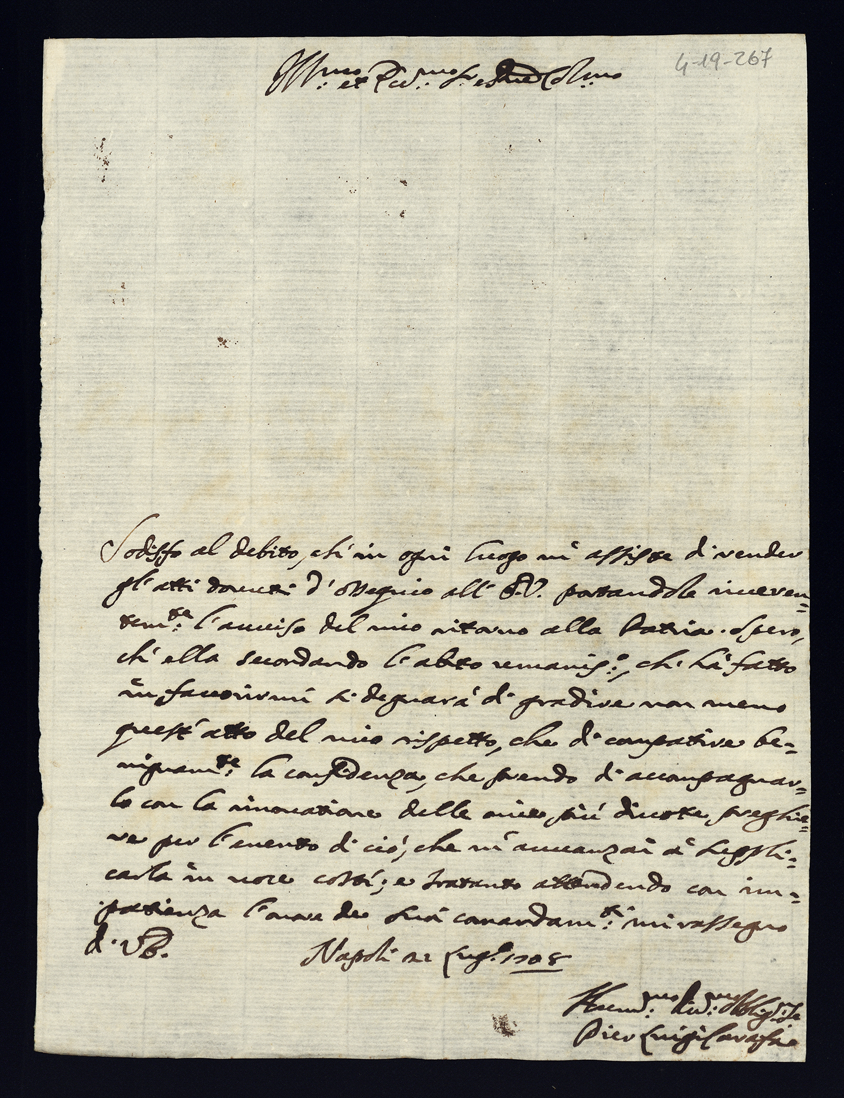 4-19-267
Ill.mo et Rev.mo Sr e Pne Col.mo
Sodisfo al debito, chi in ogni luogo mi assiste di render
gl'atti douuti d'ossequio all' S.V. portandole riueren=
tem.te l'auuiso del mio ritorno alla Patria. Spero,
ch'ella secondando l'abito, chi hà fatto
in fauorirmi si degnarà di gradire non meno
quest'atto del mio rispetto, che di compatire be=
nignam.te la confidenza, che prendo di accompagnar=
lo con la rinouatione delle mie più diuote preghie=
re per l'euento di ciò, che m'auuanzai à suppli=
carla in uoce costì; e tratanto attendendo con im=
patienza l'onore de suoi comandam.ti mi rassegno
di V.S.
Napoli Lug.o 1708
Hum.mo Diu.mo Oblig.mo Se
Pier Luigi Carafa